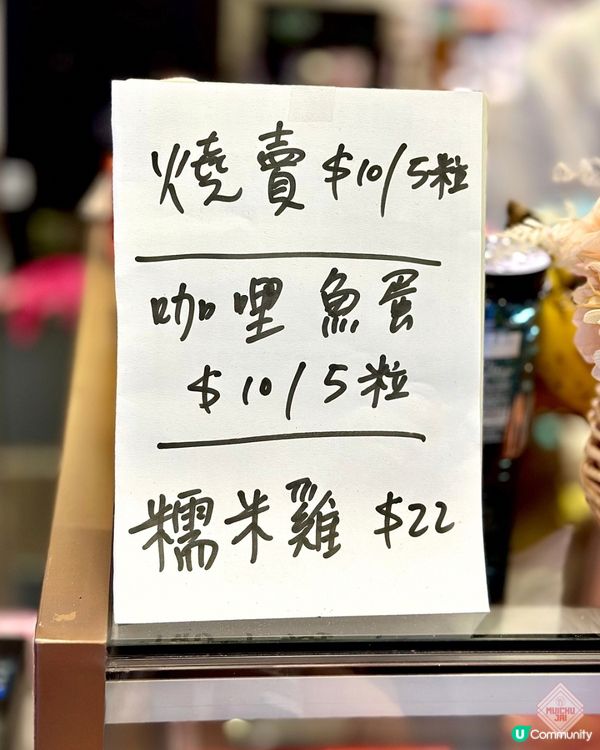 燒賣 $10/5粒
咖哩魚蛋
$10/5粒
糯米雞 $22
MUICHU
JAI
U Community